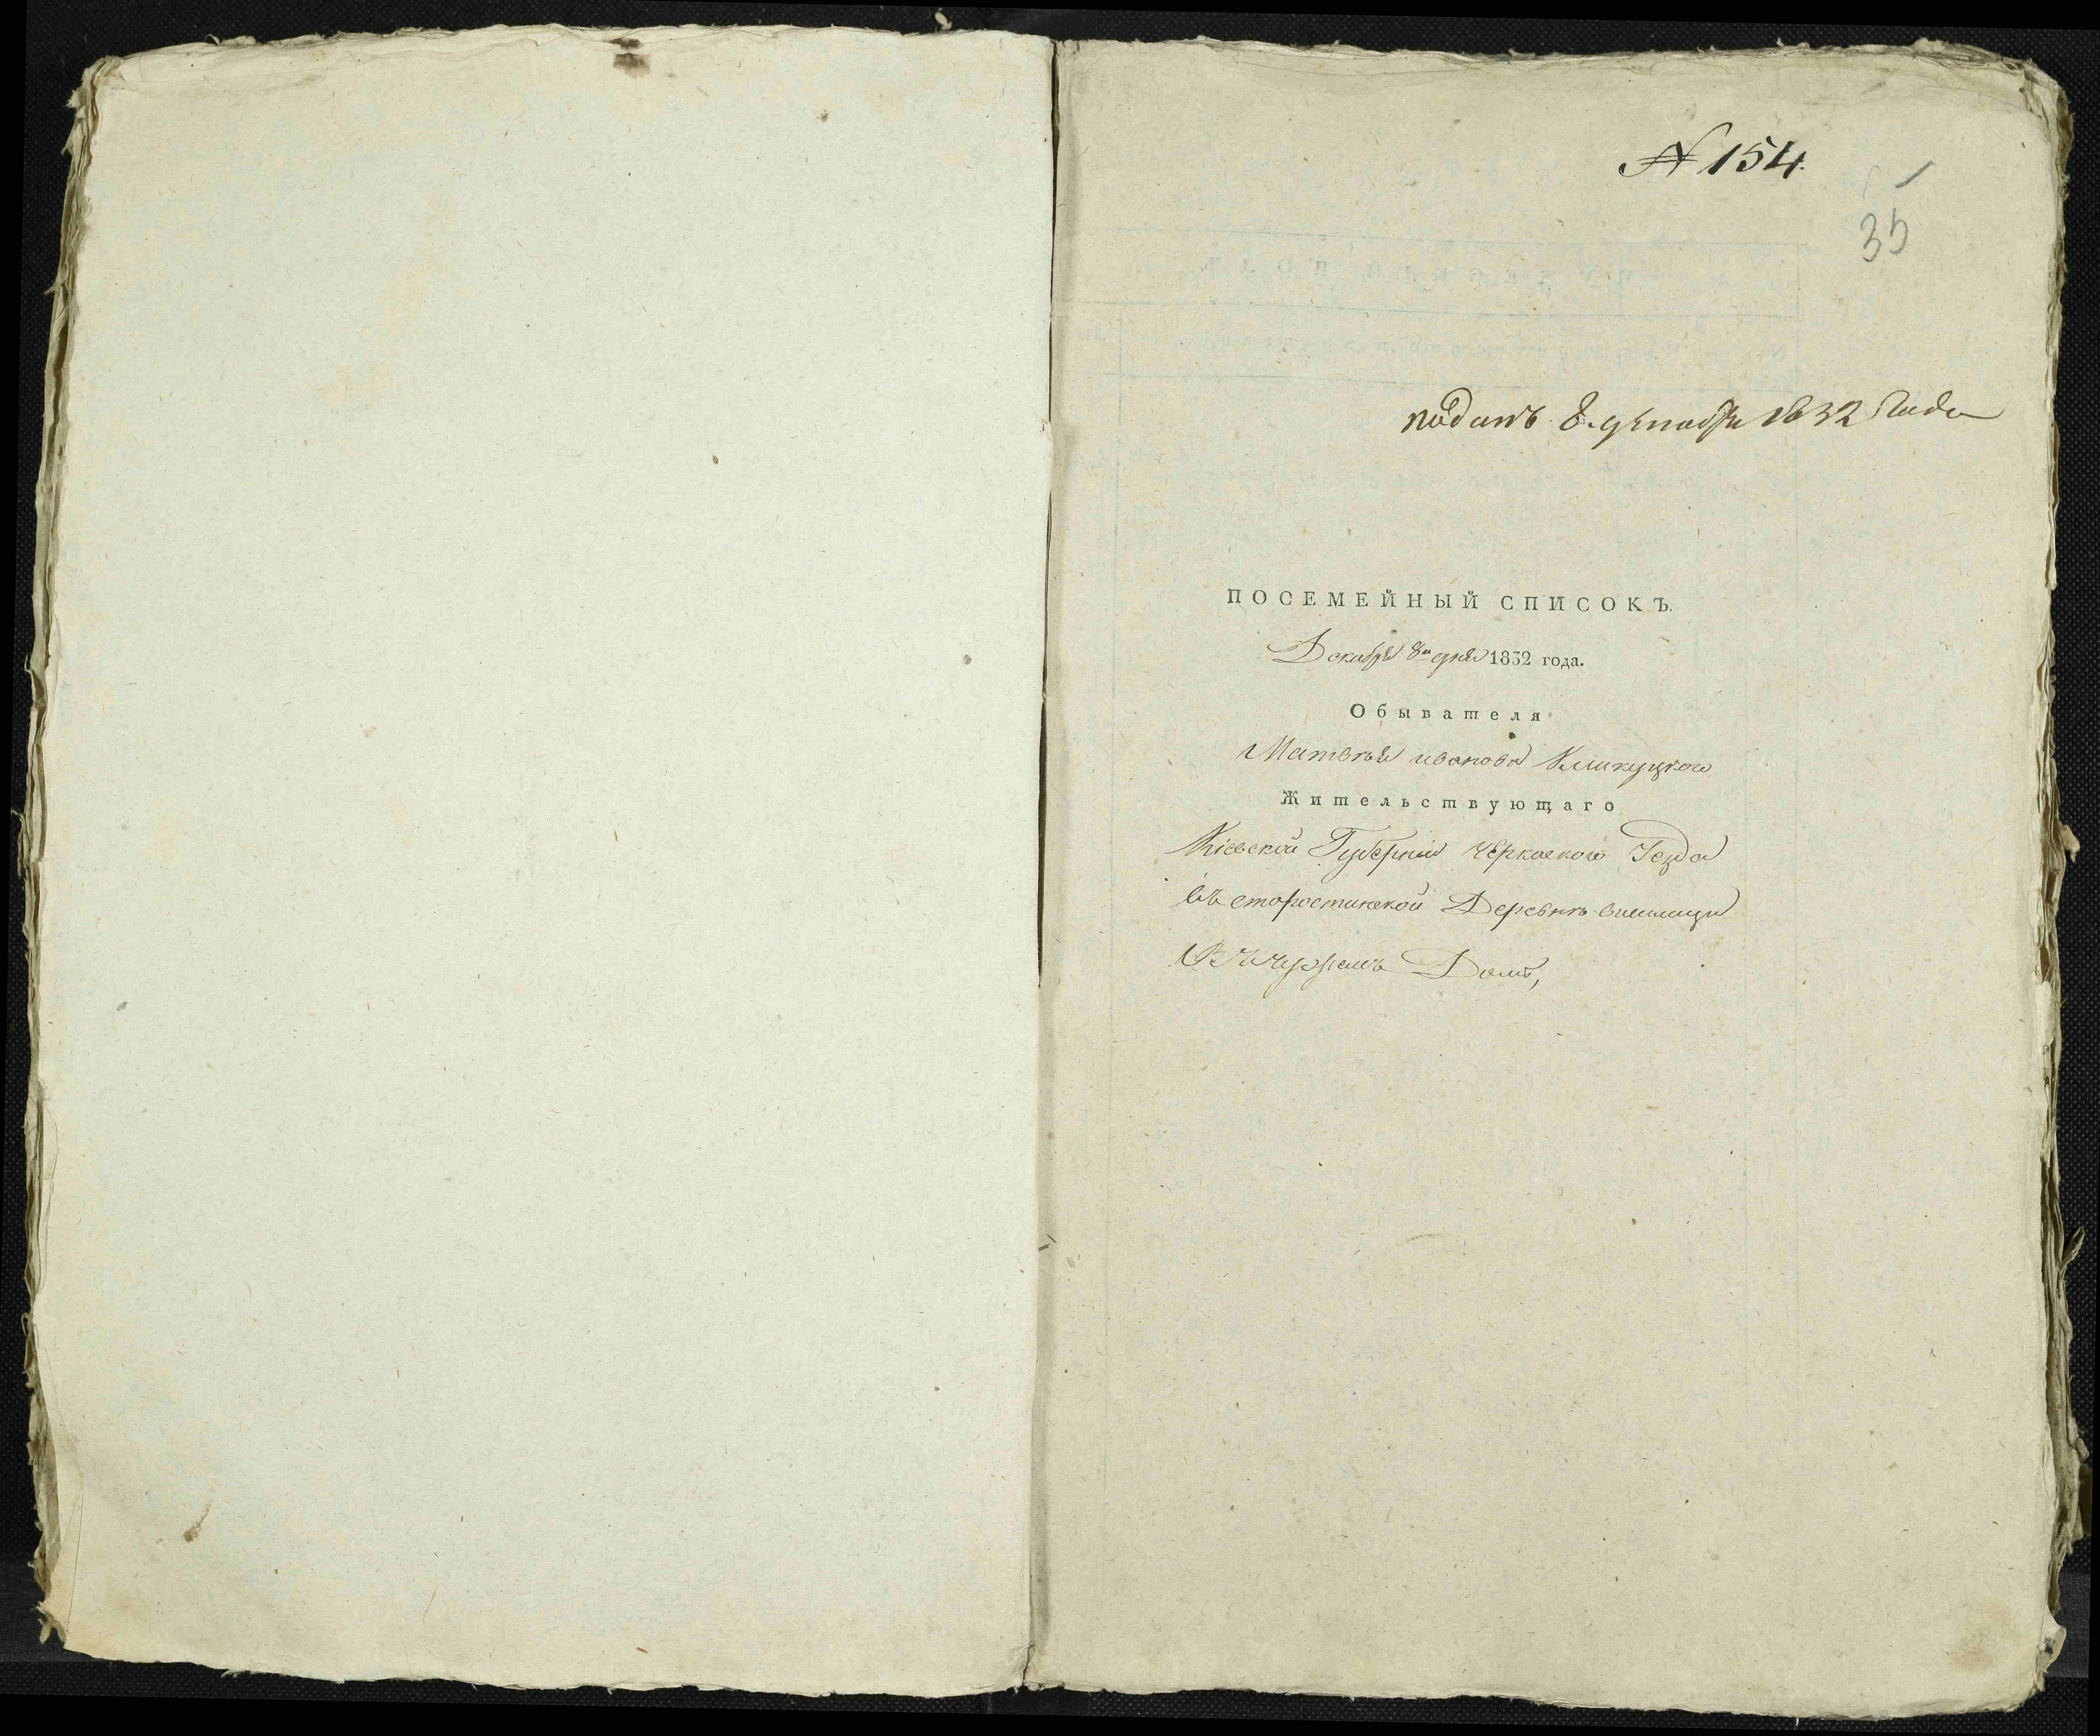 № 154.
35
поданъ 8. декабря 1832 Года
ПОСЕМЕЙНЫЙ СПИСОКЪ.
Декабря 8го дня 1832 года.
Обывателя
Матвѣя иванова
Жительствующаго
Кіевской Губерніи Черкаского Уезда
въ старостинской Деревнѣ
В чужомъ Домѣ,